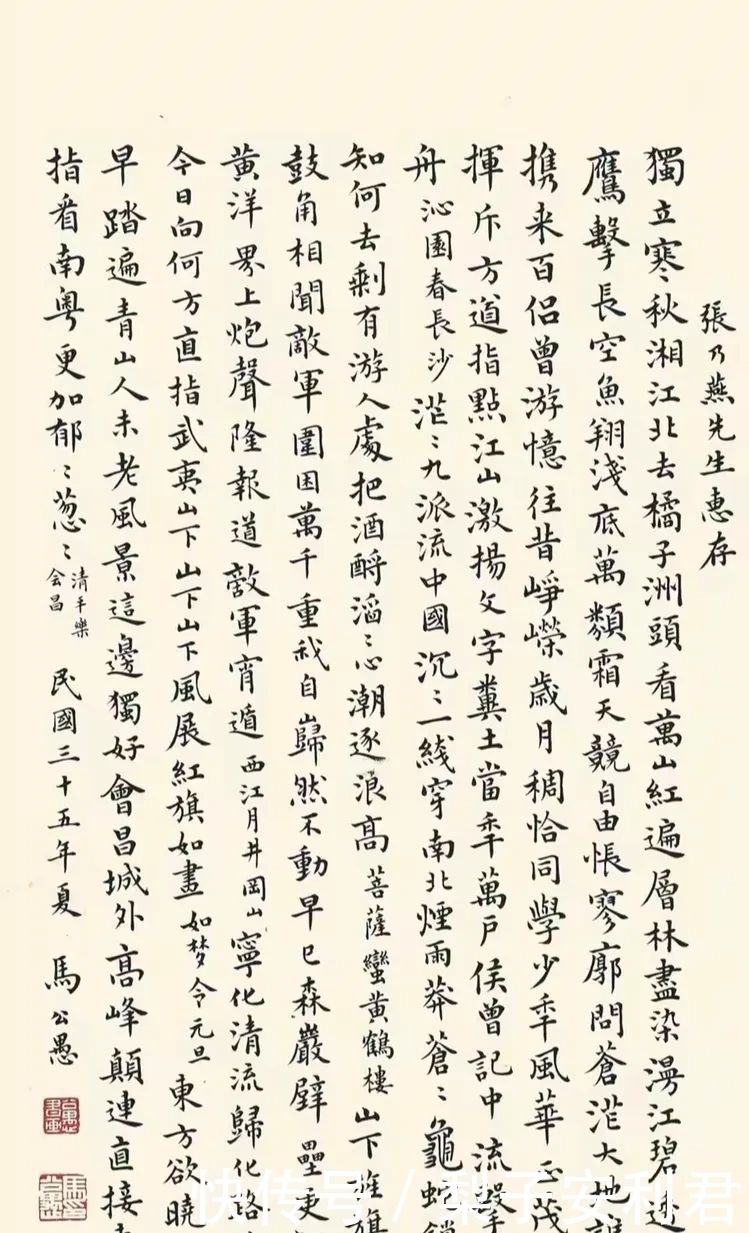 張乃燕先生惠存
獨立寒秋湘江北去橘子洲頭看萬山紅遍層林盡染漫江碧
鷹擊長空魚翔淺底萬類霜天競自由悵寥廓問蒼茫大地誰
携来百侶曾游憶往昔崢嶸歲月稠恰同學少年風華正茂
揮斥方遒指點江山激揚文字糞土當年萬戶侯曾記中流擊
舟沁園春長沙茫〻九派流中國沉〻一綫穿南北煙雨莽蒼〻龜蛇鎖
知何去剩有游人處把酒酹滔〻心潮逐浪高菩薩蠻黃鶴樓山下旌旗
鼓角相聞敵軍圍困萬千重我自巋然不動早已森嚴壁壘更
黃洋界上炮聲隆報道敵軍宵遁西江月井岡山寧化清流歸化路
今日向何方直指武夷山下山下山下風展紅旗如畫如梦令元旦東方欲曉
早踏遍青山人未老風景這邊獨好會昌城外高峰顛連直接
指看南粤更加郁〻葱〻清平樂会昌民國三十五年夏馬公愚
快传号 / 梨子安利君